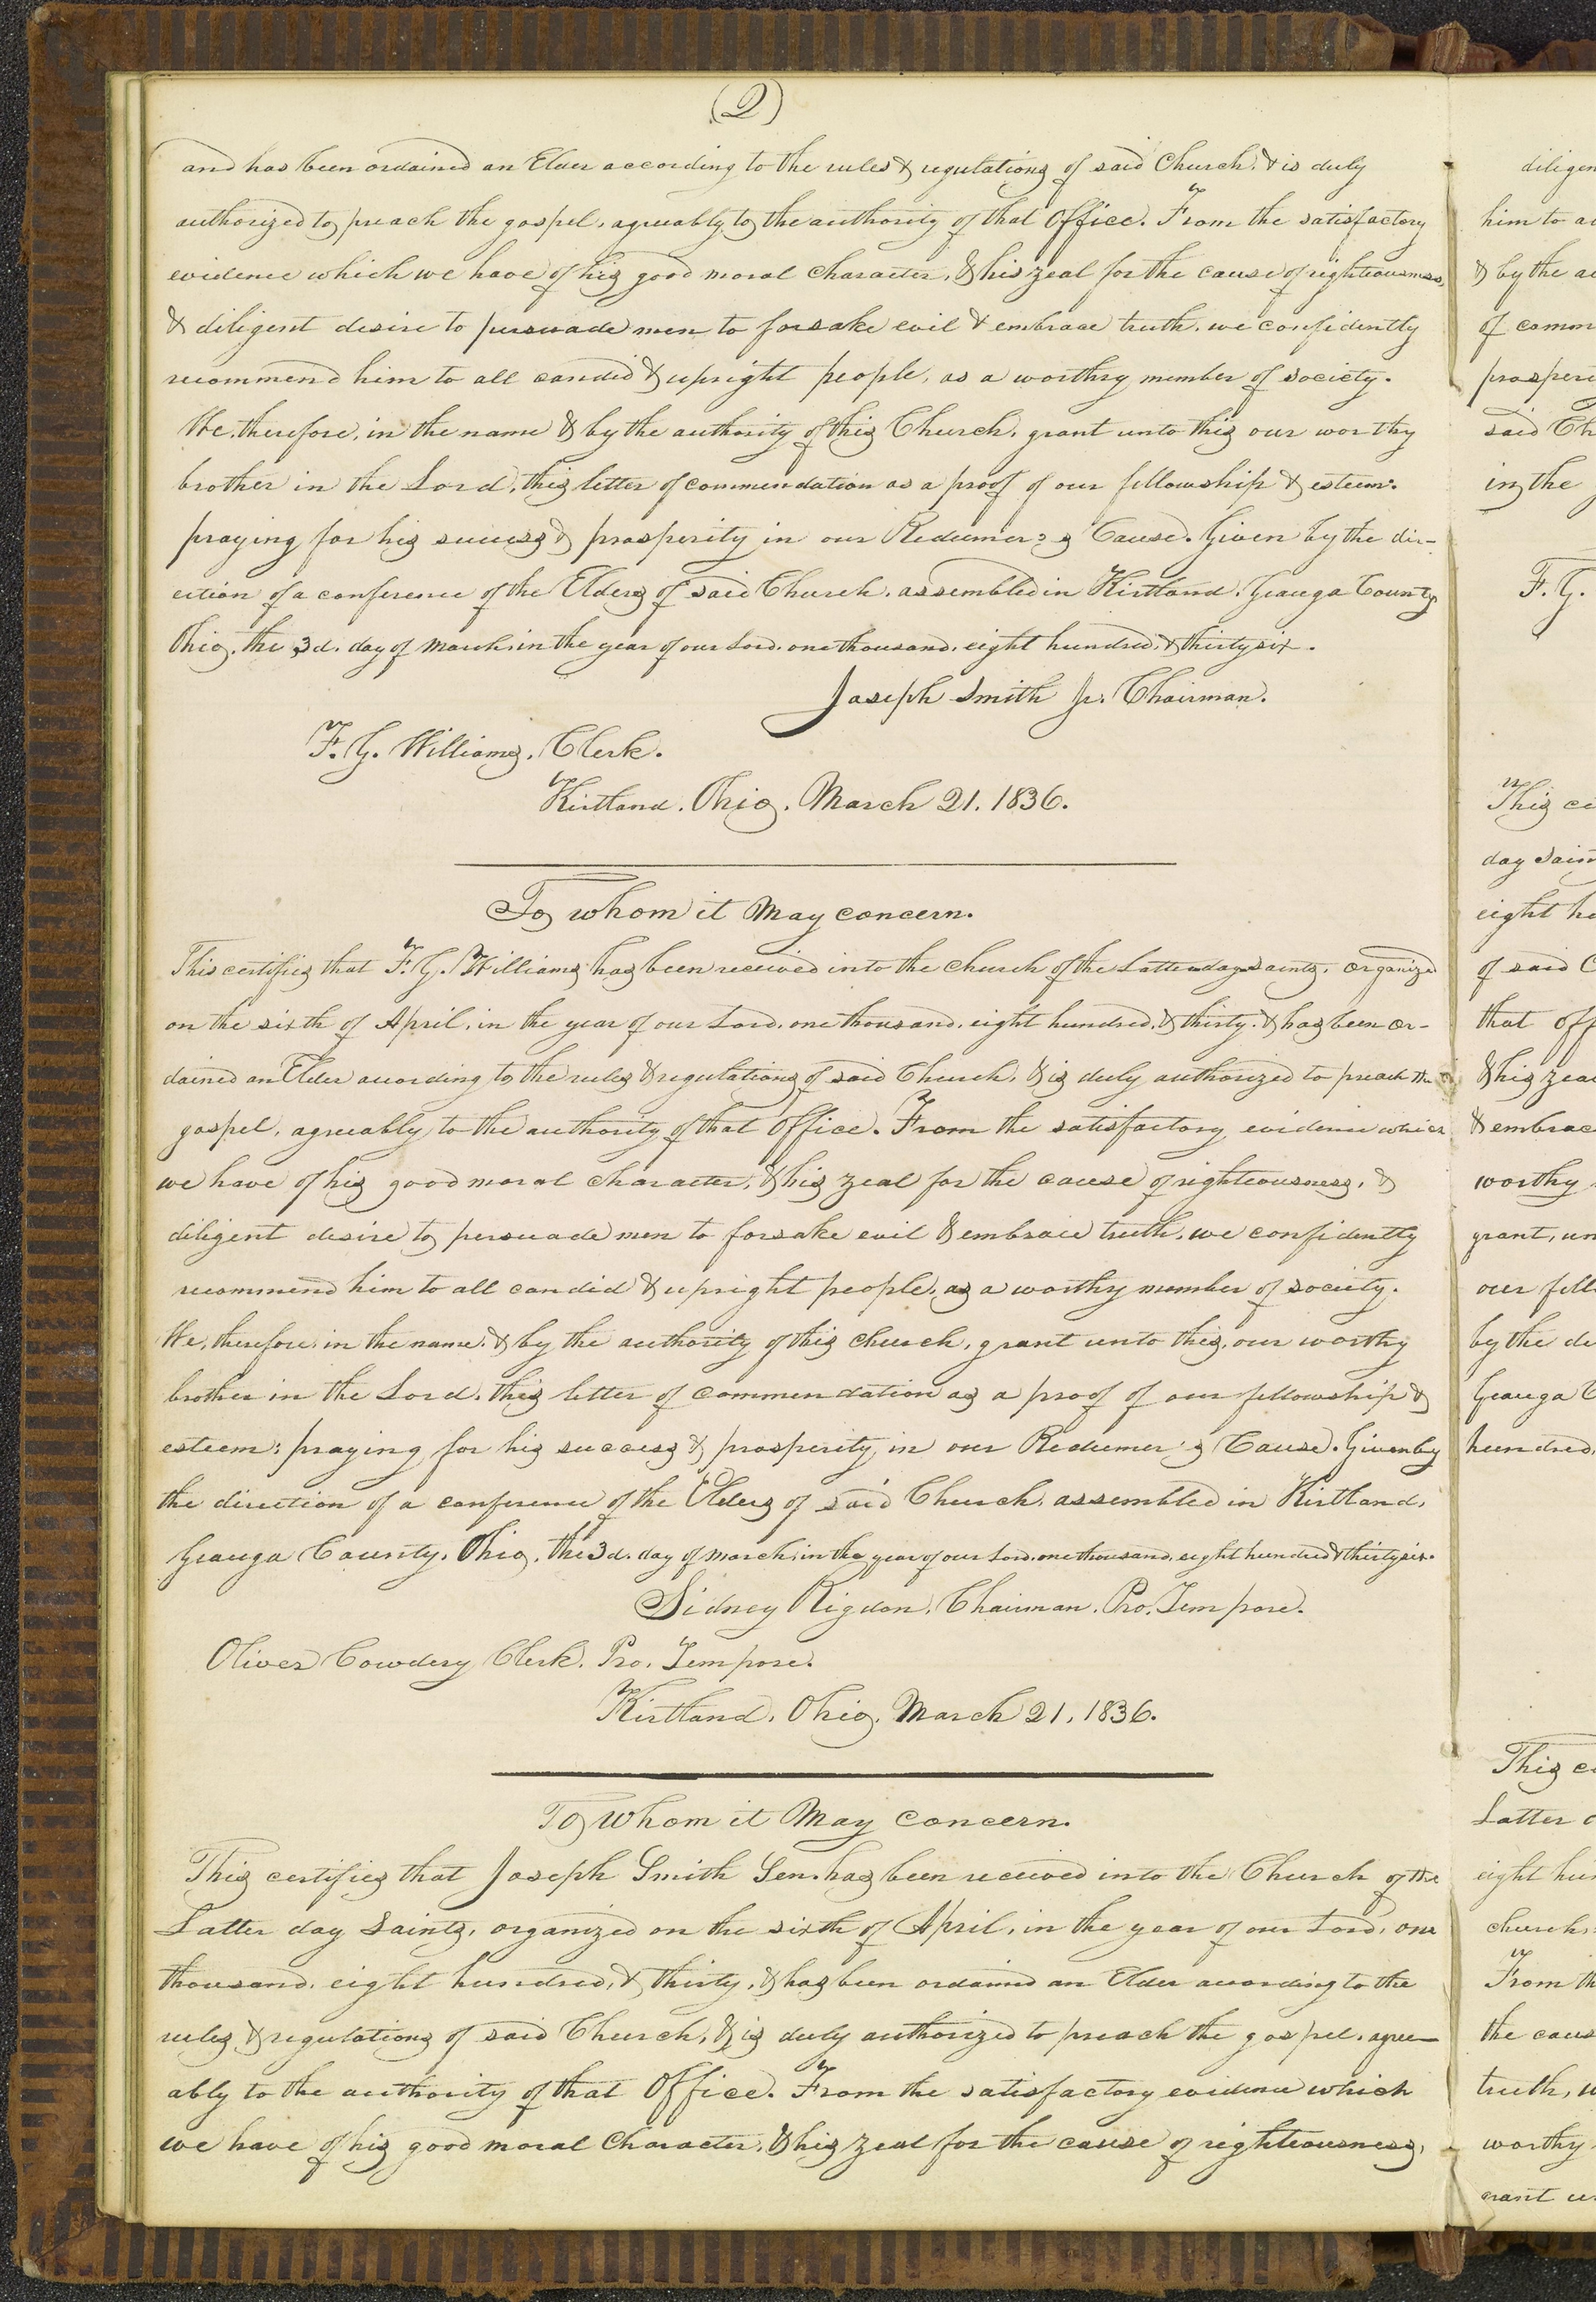 (2)
and has been ordained an Elder according to the rules & regulations of said Church, & is duly
authorized to preach the gospel, agreeably to the authority of that office. From the satisfactory
evidence which we have of his good moral character, & his zeal for the cause of righteousness,
& diligent desire to persuade men to forsake evil & embrace truth, we confidently
recommend him to all candid & upright people, as a worthy member of society.
We, therefore, in the name & by the authority of this Church, grant unto this our worthy
brother in the Lord, this letter of commendation as a proof of our fellowship & esteem:
praying for his success & prosperity in our Redeemer's Cause. Given by the dir-
ection of a conference of the Elders of said Church, assembled in Kirtland, Geauga County
Ohio, the 3d. day of March, in the year of our Lord, one thousand, eight hundred, & thirty six.
Joseph Smith Jr. Chairman.
F. G. Williams, Clerk.
Kirtland, Ohio, March 21, 1836.
To whom it May concern.
This certifies that F. G. Williams has been received into the church of the Latter day saints, organized
on the sixth of April, in the year of our Lord, one thousand, eight hundred, & thirty, & has been or-
dained an Elder according to the rules & regulations of said Church, & is duly authorized to preach the
gospel, agreeably to the authority of that office. From the satisfactory evidence which
we have of his good moral character, & his zeal for the cause of righteousness, &
diligent desire to persuade men to forsake evil & embrace truth, we confidently
recommend him to all candid & upright people, as a worthy member of society.
We, therefore, in the name, & by the authority of this church, grant unto this, our worthy
brother in the Lord, this letter of commendation as a proof of our fellowship &
esteem: praying for his success & prosperity in our Redeemer's Cause. Given by
the direction of a conference of the Elders of said Church, assembled in Kirtland,
Geauga County, Ohio, the 3d. day of March, in the year of our Lord, one thousand, eight hundred & thirty six.
Sidney Rigdon, Chairman, Pro. Tempore.
Oliver Cowdery Clerk, Pro. Tempore.
Kirtland, Ohio, March 21, 1836.
To Whom it May Concern.
This certifies that Joseph Smith Sen. has been received into the Church of the
Latter day Saints, organized on the sixth of April, in the year of our Lord, one
thousand, eight hundred, & thirty, & has been ordained an Elder according to the
rules & regulations of said Church, & is duly authorized to preach the gospel, agree-
ably to the authority of that Office. From the satisfactory evidence which
we have of his good moral Character, & his zeal for the cause of righteousness,
diligen
him to a
& by the a
of comm
prosperi
said Ch
in the
F. G.
This ce
day Sain
eight h
of said C
that off
& his zea
& embrac
worthy
grant, un
our fell
by the di
Geauga C
hundred,
This ce
Latter d
eight hun
church,
From th
the caus
truth, w
worthy
grant u